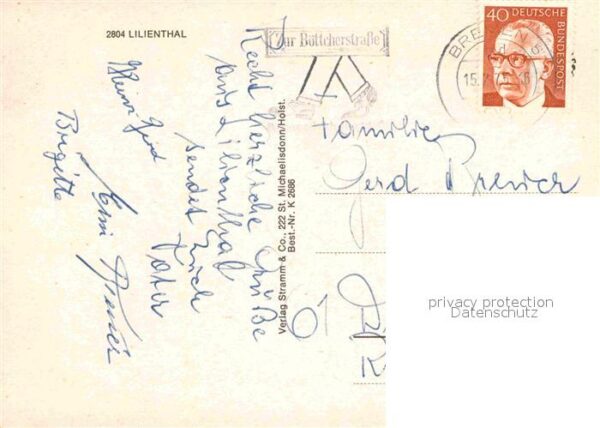 2804 LILIENTHAL
Recht herzliche Grüße
aus Lilienthal
sendet Euch
Vater
Klein Gerd
Brigitte
Verlag Stramm & Co., 222 St. Michaelisdonn/Holst.
Best.-Nr. K 2686
Zur Böttcherstraße
BRE
15.
40 DEUTSCHE
BUNDESPOST
Familie
Gerd
01
privacy protection
Datenschutz